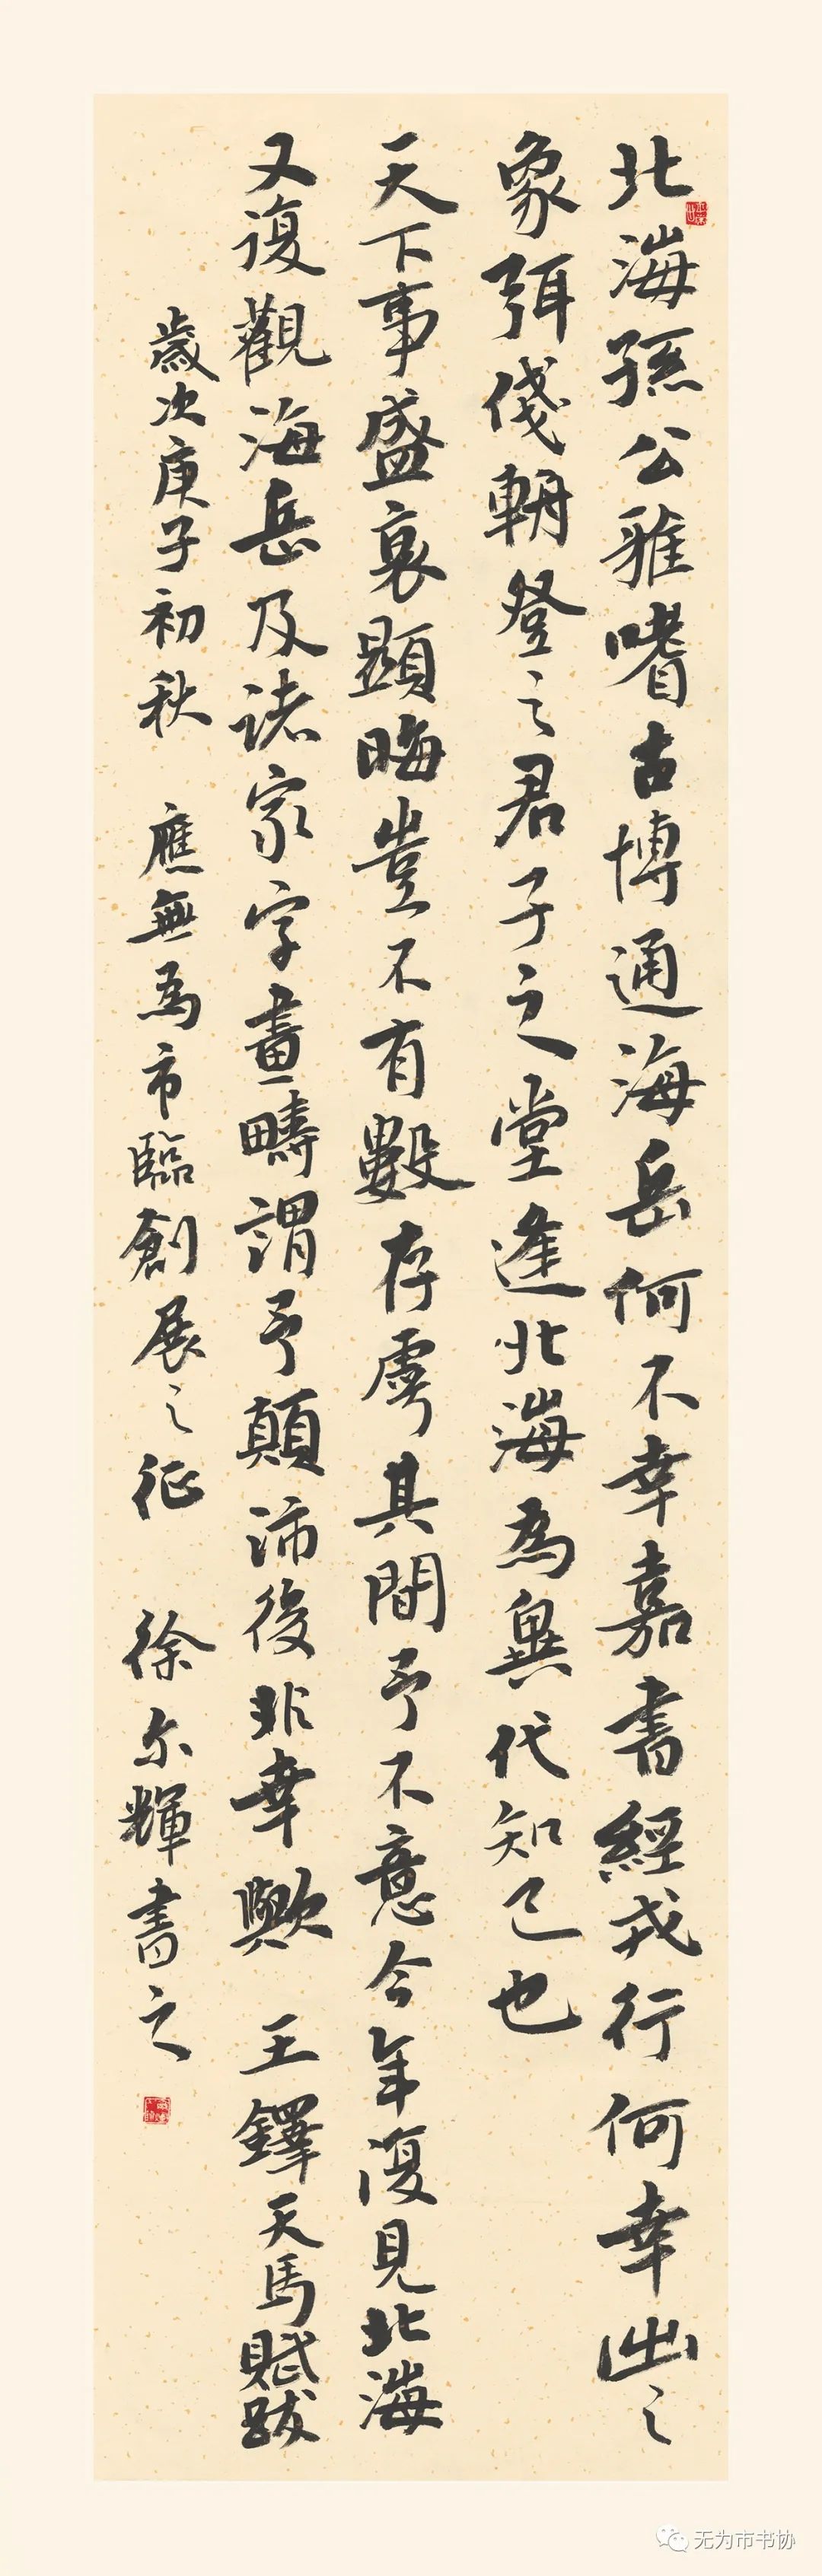 北海孫公雅嗜古博通海岳何不幸嘉書經戎行何幸出之
象弭俴輈登之君子之堂逢北海為異代知己也
天下事盛衰顯晦豈不有數存虖其間予不意今年復見北海
又復觀海岳及諸家字畫疇謂予顛沛後非幸歟 王鐸天馬賦跋
歲次庚子初秋 應無為市臨創展之征 徐尔輝書之
无为市书协